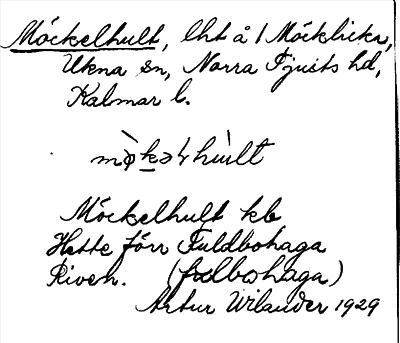 Möckelhult, lht å 1 Möcklicka,
Ukna sn, Norra Tjusts hd,
Kalmar l.
mø̀kəɫhùlt
Möckelhult kb,
Hette förr Fuldbohaga
Riven. (fulbohaga)
Artur Wilander 1929